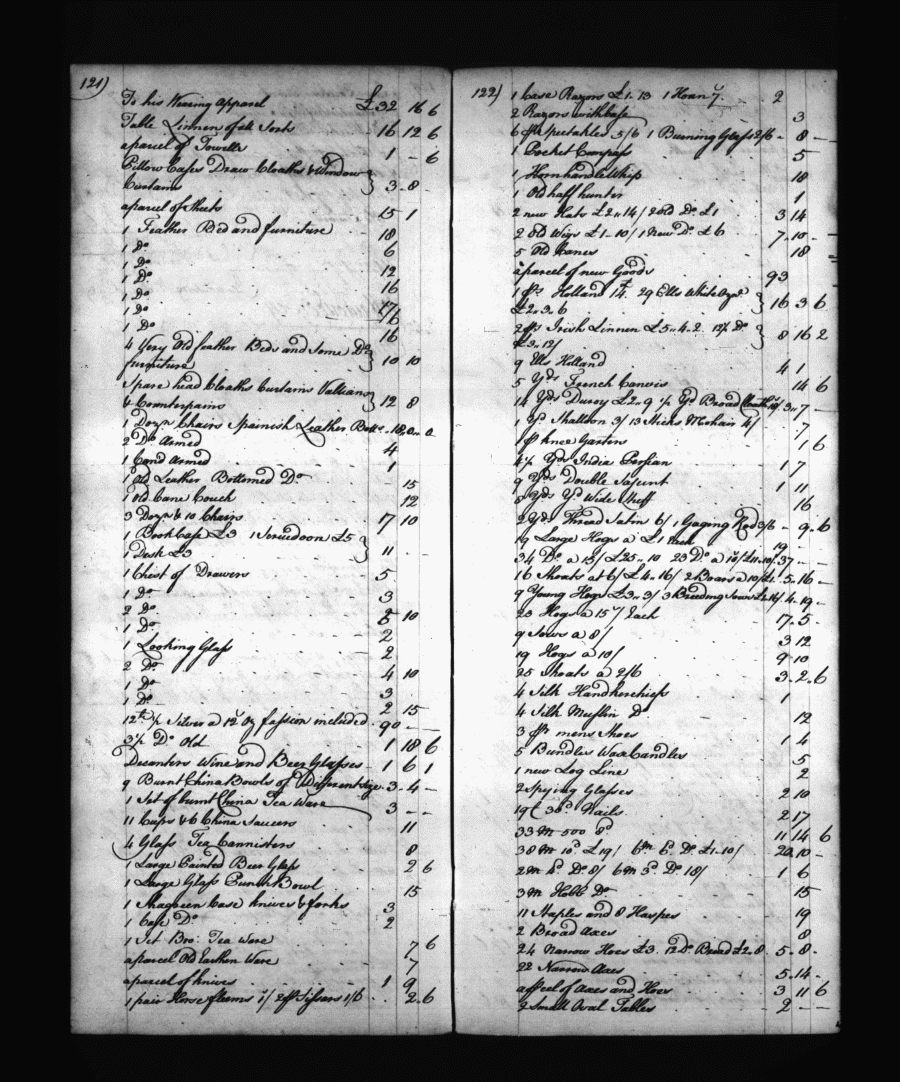 121)
To his Wearing Apparel £32 16 6
Table Linnen of all Sorts 16 12 6
a parcel of Towells 1 - 6
Pillow Cases Draw Cloaths & Window
Curtains 3 - 8 -
a parcel of Sheets 15 1
1 Feather Bed and furniture 18
1 Do. 6
1 Do. 12
1 Do. 16
1 Do.
1 Do. 17
1 Do. 16
4 Very Old feather Beds and Some Do.
furniture 10 10
Spare head Cloaths Curtains Vallians
& Counterpains 12 8
1 Dozn Chairs Spainish Leather Bott.
2 Do. Armed 4
1 Cand Armed 1
1 Old Leather Bottomed Do. 15
1 Old Cane Couch 12
3 Dozn & 10 Chairs 17 10
1 Book Case £3 1 Scruedoon £5
1 Desk £3 11
1 Chest of Drawers 5
1 Do. 3
2 Do. 10
1 Do. 2
1 Looking Glass 2
2 Do. 4 10
1 Do. 3
1 Do. 2 15
Silver a 12 Oz fassion included 90 - -
3½ Do. Old 1 18 6
Decanters Wine and Beer Glasses 1 6 1
9 Burnt China Bowls of Different size 3 - 4 -
1 Set of burnt China Tea Ware 3 - -
11 Cups & 6 China Saucers 11
4 Glass Tea Cannisters 8
1 Large Painted Beer Glass 2 6
1 Large Glass Punch Bowl 15
1 Shagreen Case Knives & forks 3
1 Case Do. 2
1 Set Bro. Tea Ware 7 6
a parcel Old Earthen Ware 7
a parcel of Knives 1 9
1 pair Horse fleems 1/ 2 pr Sissars 1/6 2 6
122)
1 Case Razors £1. 13 1 Hoan 7. 2
2 Razors with Case 3
6 pr Spectakles 5/6 1 Burning Glass 2/6 - 8 -
1 Pocket Compass 5
1 Hornhandle Whip 18
1 Old half hunter 1
2 new Hats £2 " 14/ 2 Old Do. £1 3 14
2 Old Wigs £1 - 10/ 1 New Do. £6 7 - 10 -
5 Old Canes 18
a parcel of new Goods 93
1 ps. Holland 14. 29 Ells White
£2 " 3 " 6 16 3 6
2 ps Irish Linnen £5 " 4 - 2. Do.
8 16 2
9 Ells Holland 4 1
5 Yds French Canvis 14 6
14 Yds Duroy £2 " 9 Yd Broad Cloath 3 " 7 -
1 Yd. Shalloon 3/ 13 Sticks Mohair 4/ 7
1 pr knee Garters 1 6
4½ Yds India Persian 1 7
9 Yds Double Sasunt 1 11
8 Yds Yd Wide Stuff 16
2 Yds Thread Satin 6/ 1 Gaging Rod 3/6 - 9 - 6
19 Large Hogs a £1 Each 19 - -
34 Do. a 15/ £25 - 10 23 Do. a 10/ £11 - 10/ 37 - -
16 Shoats at 6/ £4 - 16/ 2 Boars a 10/ £1. 5 - 16 -
9 Young Hogs £3 " 3/ 3 Breeding Sows 4 - 19 -
23 Hogs a 15/ Each 17 - 5 -
9 Sows a 8/ 3 12
19 Hogs a 10/ 9 10
25 Shoats a 2/6 3 - 2 - 6
4 Silk Handkerchiefs 1
4 Silk Muslin Do. 12
3 pr mens Shoes 1 4
5 Bundles Wax Candles 5
1 new Log Line 2
2 Spying Glasses 2 10
19 30d. Nails 2 17
33 m 500 8d. 11 14 6
38 m 10d. £19/ 6 m 6d. Do. £1 - 10/ 20 10 -
2 m 6d. Do. 8/ 6 m 3d. Do. 18/ 1 6
3 m Hobb Do. 15
11 Staples and 8 Haspes 19
2 Broad Axes 8
24 Narrow Hoes £3. 12 Do. Broad £2 " 8 5 - 8 -
22 Narrow Axes 5 - 14 -
a parcel of Axes and Hoes 3 11 6
2 Small Oval Tables 2 -